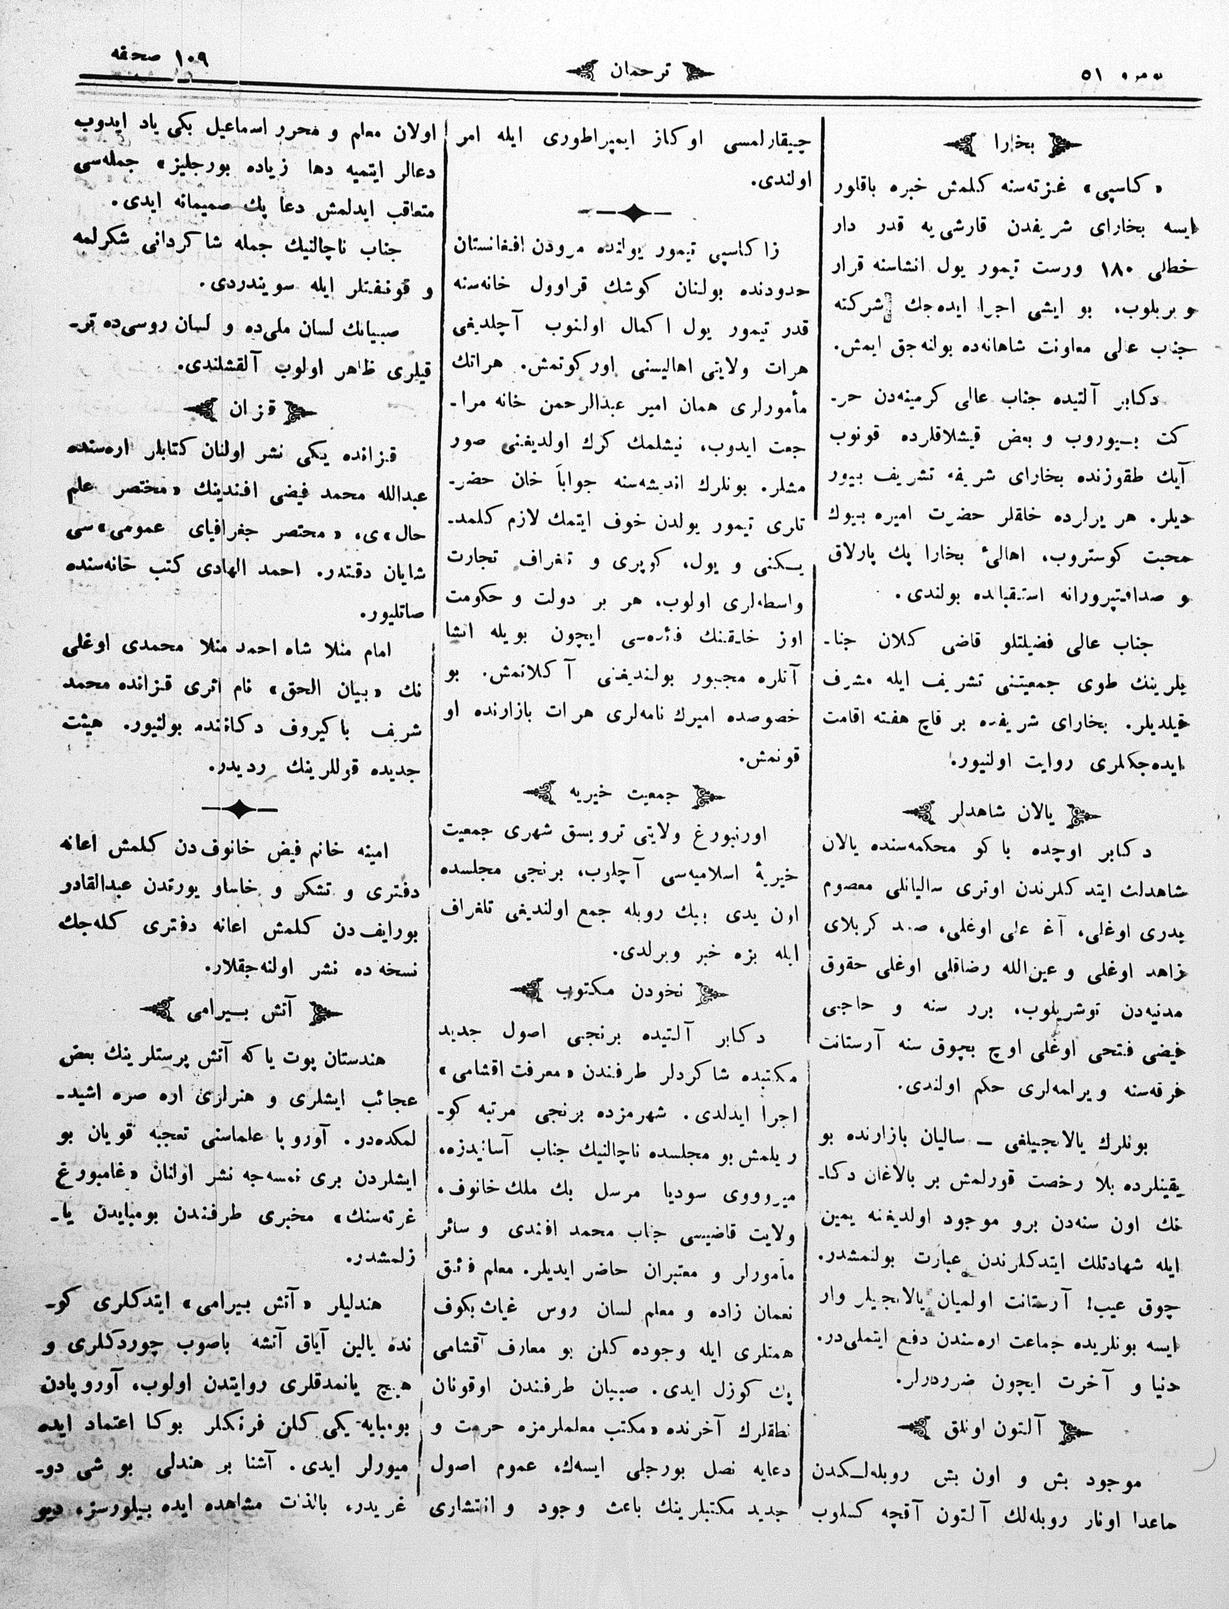 نومرو ٥١
ترجمان
١٠٩ صحفه
بخارا
«كاسپی» غزته‌سنه كلمش خبره باقلور
ايسه بخارای شريفدن قارشی‌يه قدر دار
خطلی ١٨٠ ورست تيمور يول انشاسنه قرار
ويريلوب، بو ايشی اجرا ايده‌جك شركته
جناب عالی معاونت شاهانه‌ده بولنه‌جق ايمش.
دكابر آلتيده جناب عالی كرمينه‌دن حر-
كت بيوروب و بعض قيشلاقلرده قونوب
آيك طقوزنده بخارای شريفه تشريف بيور
ديلر. هر يرلرده خلقلر حضرت اميره بيوك
محبت كوستروب، اهالیٔ بخارا پك پارلاق
و صداقتپرورانه استقبالده بولندی.
جناب عالی فضيلتلو قاضی كلان جنا-
بلرينك طوی جمعيتنی تشريف ايله مشرف
قيلديلر. بخارای شريفده بر قاچ هفته اقامت
ايده‌جكلری روايت اولنيور.
يالان شاهدلر
دكابر اوچده باكو محكمه‌سنده يالان
شاهدلك ايتدكلرندن اوتری ساليانلی معصوم
پدری اوغلی، آغا علی اوغلی، صمد كربلای
زاهد اوغلی و عين‌الله رضاقلی اوغلی حقوق
مدنيه‌دن توشريلوب، برر سنه و حاجی
فيضی فتحی اوغلی اوچ بچوق سنه آرستانت
غرقه‌سنه ويرلمه‌لری حكم اولندی.
بونلرك يالانجيلغی — ساليان بازارنده بو
يقينلرده بلا رخصت قورلمش بر بالاغان دكا-
نك اون سنه‌دن برو موجود اولديغنه يمين
ايله شهادتلك ايتدكلرندن عبارت بولنمشدر.
چوق عيب! آرستانت اولميان يالانجيلر وار
ايسه بونلريده جماعت اره‌سندن دفع ايتملی‌در.
دنيا و آخرت ايچون ضرردرلر.
آلتون اونلق
موجود بش و اون بش روبله‌لكدن
ماعدا اونار روبله‌لك آلتون آقچه كسلوب
چيقارلمسی اوكاز ايمپراطوری ايله امر
اولندی.
زاكاسپی تيمور يولنده مرودن افغانستان
حدودنده بولنان كوشك قراوول خانه‌سنه
قدر تيمور يول اكمال اولنوب آچلديغی
هرات ولايتی اهاليسنی اوركوتمش. هراتك
مأمورلری همان امير عبدالرحمن خانه مرا-
جعت ايدوب، نيشلمك كرك اولديغنی صور
مشلر. بونلرك انديشه‌سنه جواباً خان حضر-
تلری تيمور يولدن خوف ايتمك لازم كلمد-
يكنی و يول، كوپری و تلغراف تجارت
واسطه‌لری اولوب، هر بر دولت و حكومت
اوز خلقينك فائده‌سی ايچون بويله انشا
آنلره مجبور بولنديغنی آكلاتمش. بو
خصوصده اميرك نامه‌لری هرات بازارنده او
قونمش.
جمعيت خيريه
اورنبورغ ولايتی ترويسق شهری جمعيت
خيريهٔ اسلاميه‌سی آچلوب، برنجی مجلسده
اون يدی بيك روبله جمع اولنديغی تلغراف
ايله بزه خبر ويرلدی.
نخودن مكتوب
دكابر آلتيده برنجی اصول جديد
مكتبده شاكردلر طرفندن «معرفت اقشامی»
اجرا ايدلدی. شهرمزده برنجی مرتبه كو-
ريلمش بو مجلسده ناچالنيك جناب آسانيدزه،
ميرووی سوديا مرسل بك ملك خانوف،
ولايت قاضيسی جناب محمد افندی و سائر
مأمورلر و معتبران حاضر ايديلر. معلم فائق
نعمان زاده و معلم لسان روس غياث‌بكوف
همتلری ايله وجوده كلن بو معارف آقشامی
پك كوزل ايدی. صبيان طرفندن اوقونان
نطقلرك آخرنده «مكتب معلملرمزه حرمت و
دعايه نصل بورجلی ايسه‌ك، عموم اصول
جديد مكتبلرينك باعث وجود و انتشاری
اولان معلم و محرر اسماعيل بكی ياد ايدوب
دعالر ايتميه دها زياده بورجليز» جمله‌سی
متعاقب ايدلمش دعا پك صميمانه ايدی.
جناب ناچالنيك جمله شاكردانی شكرلمه
و قونفتلر ايله سويندردی.
صبيانك لسان ملی‌ده و لسان روسی‌ده تر-
قيلری ظاهر اولوب آلقشلندی.
قزان
قزانده يكی نشر اولنان كتابلر اره‌سنده
عبدالله محمد فيضی افندينك «مختصر علم
حال»ی، «مختصر جغرافيای عمومی»سی
شايان دقتدر. احمد الهادی كتب خانه‌سنده
صاتليور.
امام منلا شاه احمد منلا محمدی اوغلی
نك «بيان الحق» نام اثری قزانده محمد
شريف باكيروف دكاننده بولنيور. هيئت
جديده قوللرينك رديدر.
امينه خانم فيض خانوف‌دن كلمش اعانه
دفتری و تشكر و خاساو يورتدن عبدالقادر
بورايف‌دن كلمش اعانه دفتری كله‌جك
نسخه‌ده نشر اولنه‌جقلار.
آتش بيرامی
هندستان پوت ياكه آتش پرستلرينك بعض
عجائب ايشلری و هنرلری اره صره اشيد-
لمكده‌در. آوروپا علماسنی تعجبه قويان بو
ايشلردن بری نمسه‌جه نشر اولنان «غامبورغ
غزته‌سنك» مخبری طرفندن بومبايدن يا-
زلمشدر.
هنديلر «آتش بيرامی» ايتدكلری كو-
نده يالين آياق آتشه باصوب چوردكلری و
هيچ يانمدقلری روايتدن اولوب، آوروپادن
بومبايه يكی كلن فرنكلر بوكا اعتماد ايده
ميورلر ايدی. آشنا بر هندلی بو شی دو-
غريدر، بالذات مشاهده ايده بيلورسز، ديو